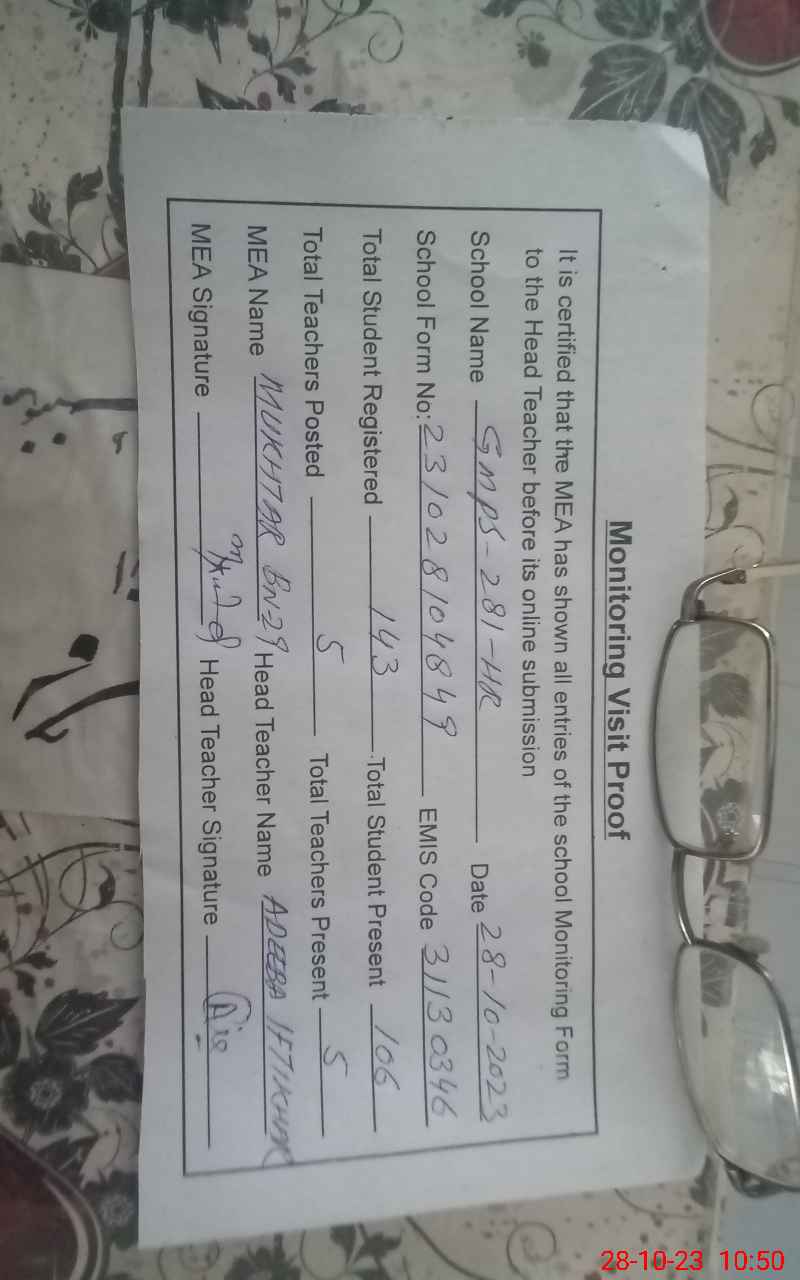 Monitoring Visit Proof
It is certified that the MEA has shown all entries of the school Monitoring Form
to the Head Teacher before its online submission
School Name GMPS-281-HR Date 28-10-2023
School Form No: 2310281048 49 EMIS Code 31130346
Total Student Registered 143 Total Student Present 106
Total Teachers Posted 5 Total Teachers Present 5
MEA Name MUKHTAR Head Teacher Name ADEEBA IFTIKHAR
MEA Signature Head Teacher Signature
28-10-23 10:50